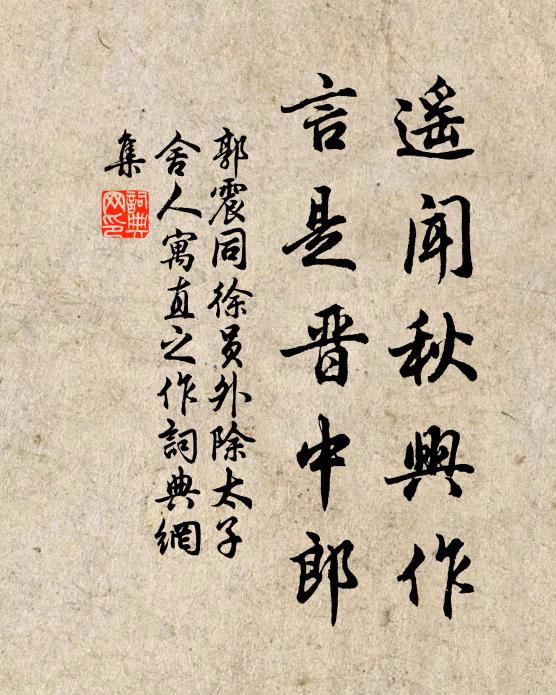 遥闻秋興作
言是晋中郎
郭震同徐员外除太子
舍人寓直之作詞典網
集
詞典
网印